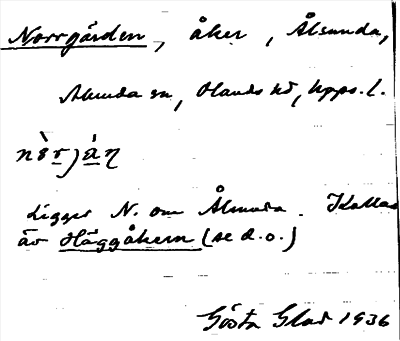 Norrgården, åker, Ålsunda,
Alunda sn, Olands hd, Upps. l.
Ligger N. om Ålsunda. Kallas
äv Häggåkern (se d.o.)
Gösta Glad 1936